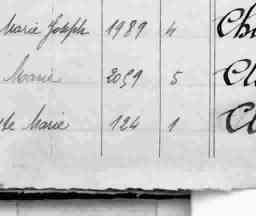 Marie Joseph 1989 4 Ch
Marie 2059 5 Cl
te Marie 124 1 C